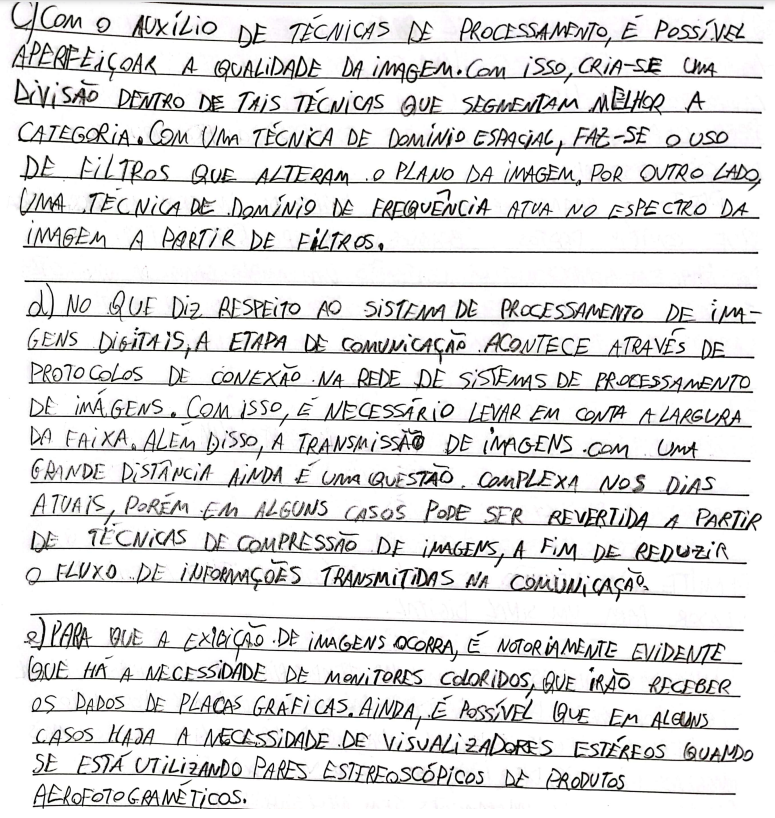 c) COM O AUXÍLIO DE TÉCNICAS DE PROCESSAMENTO, É POSSÍVEL
APERFEIÇOAR A QUALIDADE DA IMAGEM. COM ISSO, CRIA-SE UMA
DIVISÃO DENTRO DE TAIS TÉCNICAS QUE SEGMENTAM MELHOR A
CATEGORIA. COM UMA TÉCNICA DE DOMÍNIO ESPACIAL, FAZ-SE O USO
DE FILTROS QUE ALTERAM O PLANO DA IMAGEM. POR OUTRO LADO,
UMA TÉCNICA DE DOMÍNIO DE FREQUÊNCIA ATUA NO ESPECTRO DA
IMAGEM A PARTIR DE FILTROS.
d) NO QUE DIZ RESPEITO AO SISTEMA DE PROCESSAMENTO DE IMA-
GENS DIGITAIS, A ETAPA DE COMUNICAÇÃO ACONTECE ATRAVÉS DE
PROTOCOLOS DE CONEXÃO NA REDE DE SISTEMAS DE PROCESSAMENTO
DE IMÁGENS. COM ISSO, É NECESSÁRIO LEVAR EM CONTA A LARGURA
DA FAIXA. ALÉM DISSO, A TRANSMISSÃO DE IMAGENS COM UMA
GRANDE DISTÂNCIA AINDA É UMA QUESTÃO COMPLEXA NOS DIAS
ATUAIS, PORÉM EM ALGUNS CASOS PODE SER REVERTIDA A PARTIR
DE TÉCNICAS DE COMPRESSÃO DE IMAGENS, A FIM DE REDUZIR
O FLUXO DE INFORMAÇÕES TRANSMITIDAS NA COMUNICAÇÃO.
e) PARA QUE A EXIBIÇÃO DE IMAGENS OCORRA, É NOTORIAMENTE EVIDENTE
QUE HÁ A NECESSIDADE DE MONITORES COLORIDOS, QUE IRÃO RECEBER
OS DADOS DE PLACAS GRÁFICAS. AINDA, É POSSÍVEL QUE EM ALGUNS
CASOS HAJA A NECESSIDADE DE VISUALIZADORES ESTÉREOS QUANDO
SE ESTÁ UTILIZANDO PARES ESTEREOSCÓPICOS DE PRODUTOS
AEROFOTOGRAMÉTICOS.